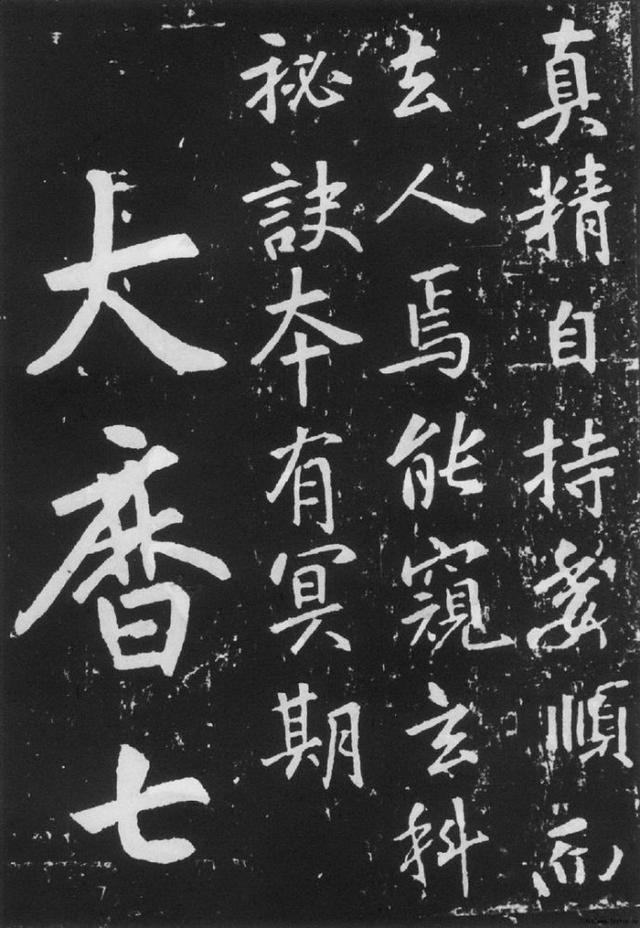 真精自持順而
去人焉能窺玄科
祕訣本有冥期
大曆七